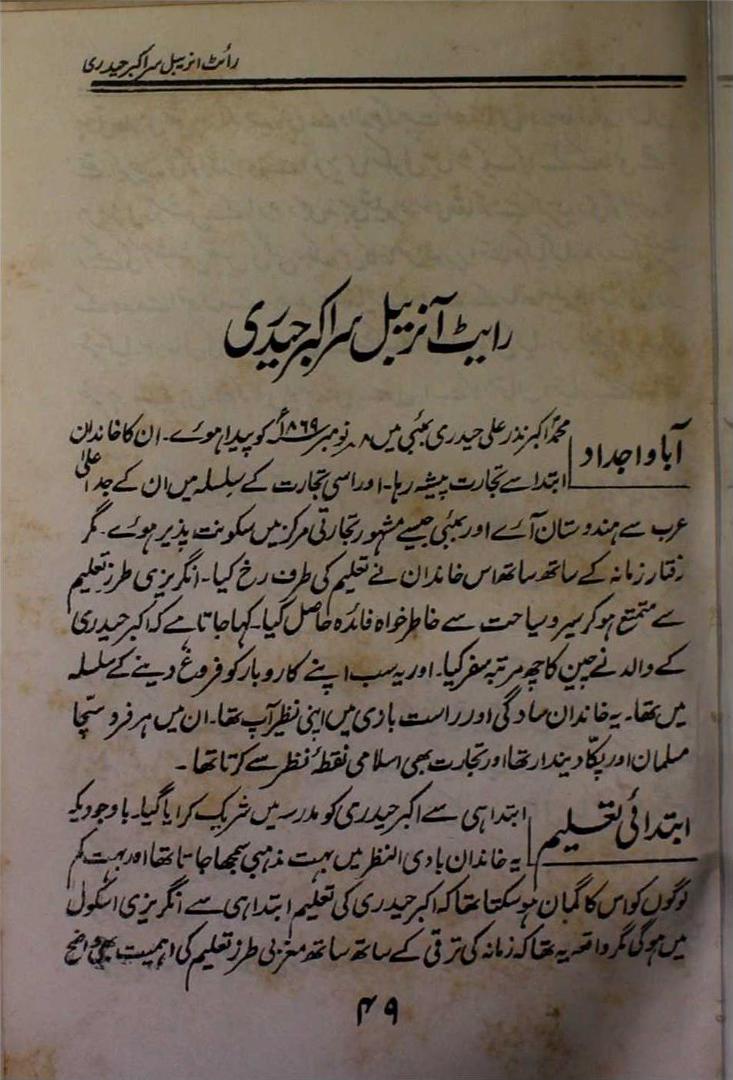 رائٹ انریبل سر اکبر حیدری
رایٹ آنریبل سر اکبر حیدری
آبا و اجداد
محمد اکبر نذر علی حیدری بمبئی میں ۸ نومبر ۱۸۶۹ء کو پیدا ہوے۔ ان کا خاندان
ابتدا سے تجارت پیشہ رہا۔ اور اسی تجارت کے سلسلہ میں ان کے جد اعلیٰ
عرب سے ہندوستان آے اور بمبئی جیسے مشہور تجارتی مرکز میں سکونت پذیر ہوے۔ مگر
رفتار زمانہ کے ساتھ ساتھ اس خاندان نے تعلیم کی طرف رخ کیا۔ انگریزی طرز تعلیم
سے متمتع ہو کر سیر و سیاحت سے خاطر خواہ فائدہ حاصل گیا۔ کہا جاتا ہے کہ اکبر حیدری
کے والد نے چین کا چھ مرتبہ سفر کیا۔ اور یہ سب اپنے کاروبار کو فروغ دینے کے سلسلہ
میں تھا۔ یہ خاندان سادگی اور راست بازی میں اپنی نظیر آپ تھا۔ ان میں ہر فرد سچا
مسلمان اور پکا دیندار تھا اور تجارت بھی اسلامی نقطۂ نظر سے کرتا تھا۔
ابتدائی تعلیم
ابتدا ہی سے اکبر حیدری کو مدرسہ میں شریک کرایا گیا۔ باوجودیکہ
یہ خاندان بادی النظر میں بہت مذہبی سمجھا جاتا تھا اور بہت کم
لوگوں کو اس کا گمان ہو سکتا تھا کہ اکبر حیدری کی تعلیم ابتدا ہی سے انگریزی اسکول
میں ہو گی مگر واقعہ یہ تھا کہ زمانہ کی ترقی کے ساتھ ساتھ مغربی طرز تعلیم کی اہمیت بھی واضح
۴۹